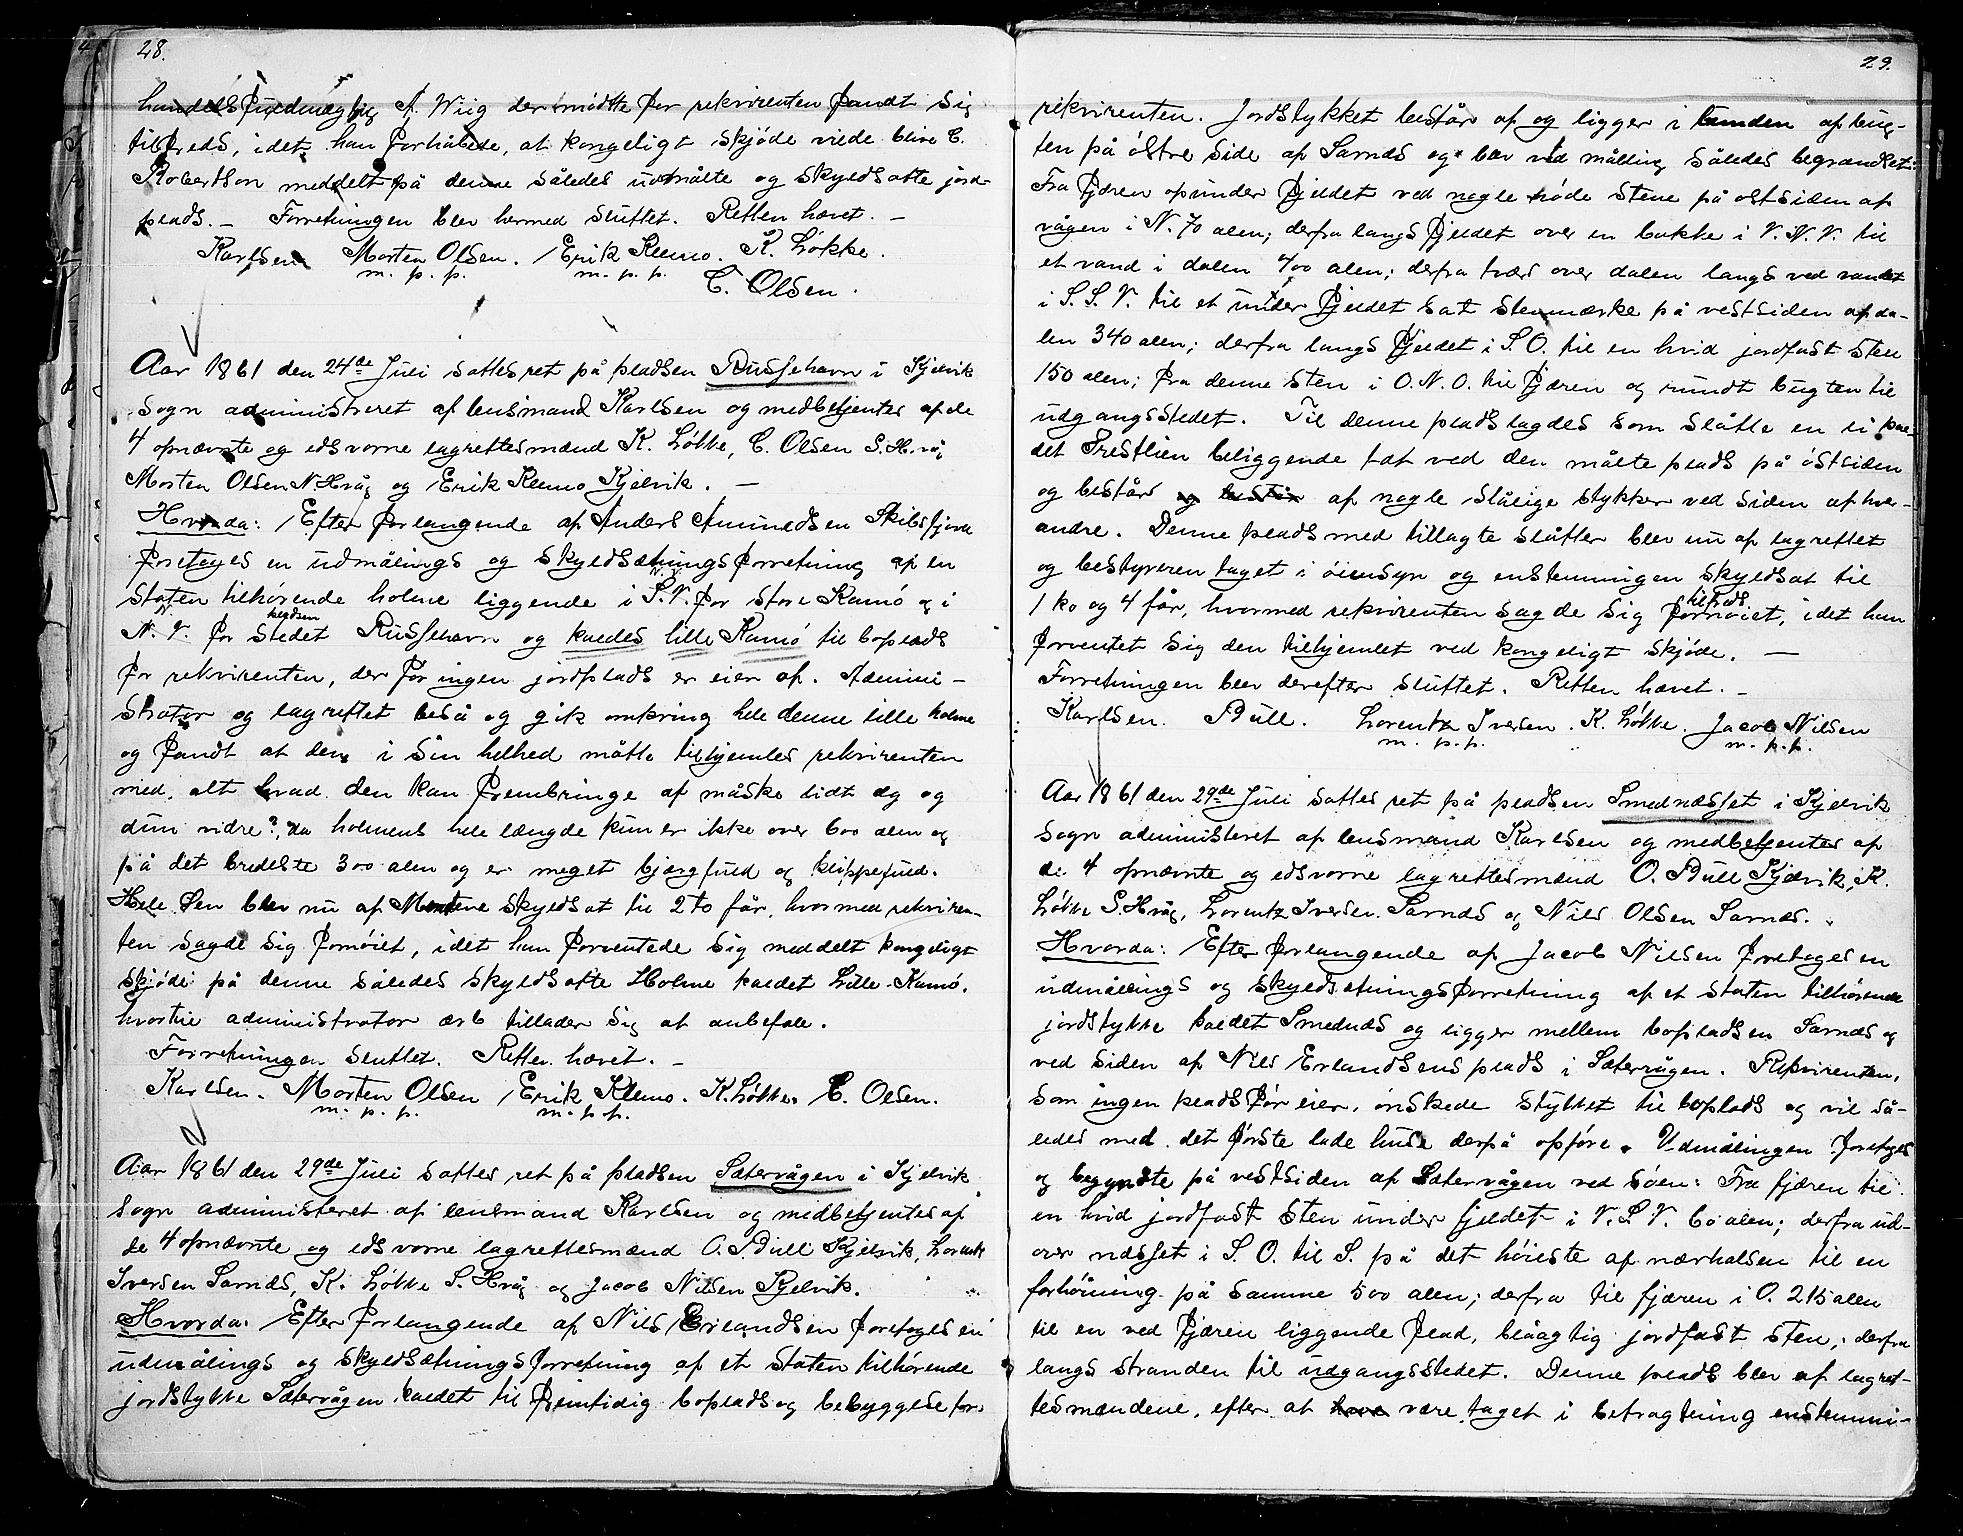 28.
handelsfuldmægtig A. Wiig der mødtte for rekvirenten fandt sig
tilfreds, idet han forhåbede, at kongeligt skjøde vilde blive C.
Robertson meddelt på denne således udmålte og skyldsatte jord-
plads. — Forretningen blev hermed sluttet. Retten hævet. —
Karlsen Morten Olsen. Erik Klemo. K. Løkke.
m. p. p. m. p. p.
C. Olsen.
Aar 1861 den 24de Juli sattes ret på pladsen Russehavn i Kjelvik
sogn administreret af lensmand Karlsen og medbetjentes af de
4 opnævnte og edsvorne lagrettesmænd K. Løkke, C. Olsen S. H.våg
Morten Olsen N Hvåg og Erik Klemo Kjelvik. —
Hvorda: Efter forlangende af Anders Amundsen Skibsfjord
foretoges en udmålings og skyldsætningsforretning af en
staten tilhørende holme liggende i S.V. for store Kamø og i
N. V. for stedet pladsen Russehavn og kaldes lille Kamø til boplads
for rekvirenten, der før ingen jordplads er eier af. Admini-
strator og lagrettet beså og gik omkring hele denne lille holme
og fandt at den i sin helhed måtte tilhjemles rekvirenten
med alt hvad den kan frembringe af måske lidt æg og
dun vidre?, da holmens hele længde kun er ikke over 600 alen og
på det bredeste 300 alen og er meget bjergfuld og klippefuld.
Hele den blev nu af Mændene skyldsat til 2 to får, hvormed rekviren-
ten sagde sig fornøiet, idet han forventede sig meddelt kongeligt
skjøde på denne således skyldsatte Holme kaldet Lille-Kamø.
hvortil administrator ærb tillader sig at anbefale.
Forretningen sluttet. Retten hævet. —
Karlsen. Morten Olsen Erik Klemo. K. Løkke. C. Olsen.
m. p. p. m. p. p.
Aar 1861 den 29de Juli sattes ret på pladsen Sætervågen i Kjelvik
sogn administeret af lensmand Karlsen og medbetjentes af
de 4 opnævnte og edsvorne lagrettesmænd O. Bull Kjelvik, Lorentz
Iversen Sarnes, K. Løkke S. Hvåg og Jacob Nilsen Kjelvik.
Hvorda: Efter forlangende af Nils Erlandsen foretoges en
udmålings og skyldsætningsforretning af et staten tilhørende
jordstykke Sætervågen kaldet til fremtidig boplads og bebyggelse for
29.
rekvirenten. Jordstykket består af og ligger i bunden af bug-
ten på østre side af Sarnes og blev ved måling således begrændset:
Fra fjæren opunder fjeldet ved nogle røde stene på østsiden af
vågen i N. 70 alen; derfra langs fjeldet over en bakke i V. N. V. til
et vand i dalen 400 alen; derfra tvers over dalen langs ved vandet
i S. S. V. til et under fjeldet sat stenmærke på vestsiden af da-
len 340 alen; derfra langs fjeldet i S. O. til en hvid jordfast sten
150 alen; fra denne sten i O. N. O. til fjæren og rundt bugten til
udgangsstedet. Til denne plads lagdes som slåtte en li kal-
det Prestlien beliggende tæt ved den målte plads på østsiden
og består og består af nogle slålige stykker ved siden af hver-
andre. Denne plads med tillagte slåtter blev nu af lagrettet
og bestyreren taget i øiensyn og enstemmingen skyldsat til
1 ko og 4 får, hvormed rekvirenten sagde sig fornøiet tilfreds, idet han
forventet sig den tilhjemlet ved kongeligt skjøde. —
Forretningen blev derefter sluttet. Retten hævet. —
Karlsen. Bull. Lorentz Iversen. K. Løkke. Jacob Nilsen
m. p. p. m. p. p.
Aar 1861 den 29de Juli sattes ret på pladsen Smednæsset i Kjelvik
sogn administeret af lensmand Karlsen og medbetjentes af
de 4 opnævnte og edsvorne lagrettesmænd O. Bull Kjelvik, K.
Løkke S. Hvåg, Lorentz Iversen Sarnes og Nils Olsen Sarnes.
Hvorda: Efter forlangende af Jacob Nilsen foretoges en
udmålings og skyldsetningsforretning af et staten tilhørende
jordstykke kaldet Smednæs og ligger mellem bopladsen Sarnes og
ved siden af Nils Erlandsens plads i Sætervågen. Rekvirenten,
som ingen plads før eier, ønskede stykket til boplads og vil så-
ledes med det første lade huse derpå opføre. Udmålingen foretoges
og begyndte på vestsiden af Sætervågen ved søen: Fra fjæren til
en hvid jordfast sten under fjeldet i V. S. V. 60 alen; derfra ud-
over næsset i S. O. til S. på det høieste af nærhalsen til en
forhøining på samme 500 alen; derfra til fjæren i O. 215 alen
til en ved fjæren liggende flad, blåagtig jordfast sten; derfra
langs stranden til udgangsstedet. Denne plads blev af lagret-
tesmændene, efter at have være taget i betragtning enstemmi-